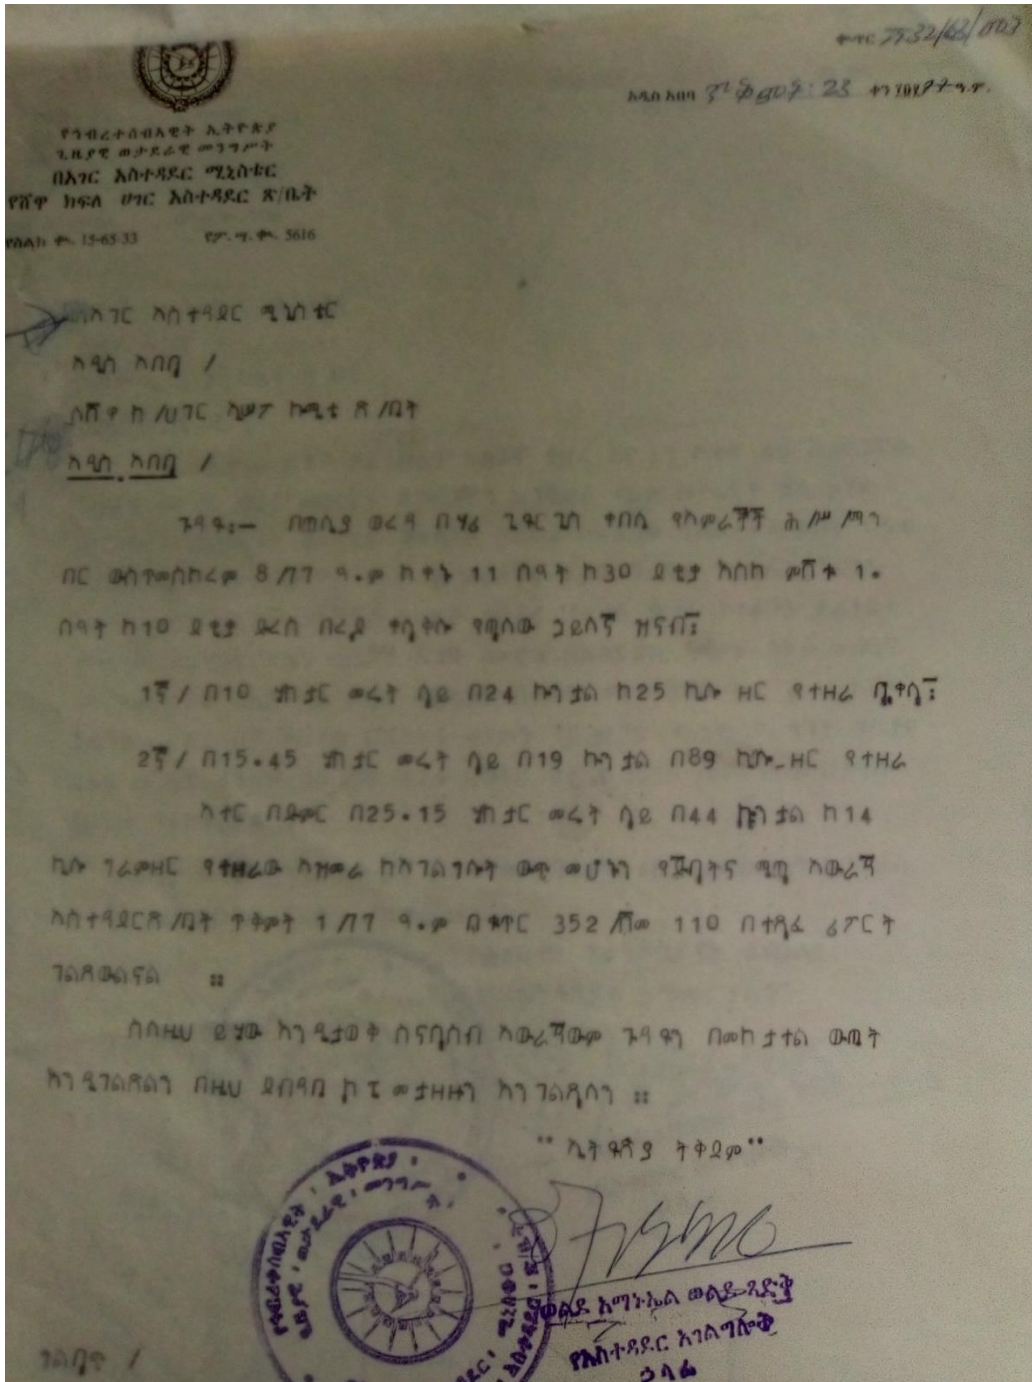 ቁጥር
አዲስ አበባ ጥቅምት 23 ቀን ዓ.ም.
የኅብረተሰብአዊት ኢትዮጵያ
ጊዜያዊ ወታደራዊ መንግሥት
በአገር አስተዳደር ሚኒስቴር
የሸዋ ክፍለ ሀገር አስተዳደር ጽ/ቤት
የስልክ ቍ. 15-65-33 የፖ. ሣ. ቍ. 5616
ለአገር አስተዳደር ሚኒስቴር
አዲስ አበባ /
ለሸዋ ክ/ሀገር ኢሠፓ ኮሚቴ ጽ/ቤት
አዲስ አበባ /
ጉዳዩ:— በወሊያ ወረዳ ጊዮርጊስ ቀበሌ የአምራቾች
በር ውስጥ መስከረም 8/77 ዓ.ም ከቀኑ 11 ሰዓት ከ30 ደቂቃ እስከ ምሽቱ 1.
ሰዓት ከ10 ደቂቃ ድረስ በረዶ ቀላቅሎ የጣለው ኃይለኛ ዝናብ፤
1ኛ/ በ10 ሄክታር መሬት ላይ በ24 ኩንታል ከ25 ኪሎ ዘር የተዘራ ባቄላ፤
2ኛ/ በ15.45 ሄክታር መሬት ላይ በ19 ኩንታል በ89 ኪሎ ዘር የተዘራ
አተር በድምር በ25.15 ሄክታር መሬት ላይ በ44 ኩንታል ከ14
ኪሎ ግራም ዘር የተዘራው አዝመራ ከአገልግሎት ውጭ መሆኑን የጅባትና ሜጫ አውራጃ
አስተዳደር ጽ/ቤት ጥቅምት 1/77 ዓ.ም በቁጥር 352/ሸመ 110 በተጻፈ ሪፖርት
ገልጾልናል ።
ስለዚህ ይኸው እንዲታወቅ ስናሳስብ አውራጃውም ጉዳዩን በመከታተል ውጤት
እንዲገልጽልን በዚህ ደብዳቤ ኮፒ መታዘዙን እንገልጻለን ።
"ኢትዮጵያ ትቅደም"
ወልደ አማኑኤል ወልደ ጻድቅ
የአስተዳደር አገልግሎት
ኃላፊ
ግልባጭ /